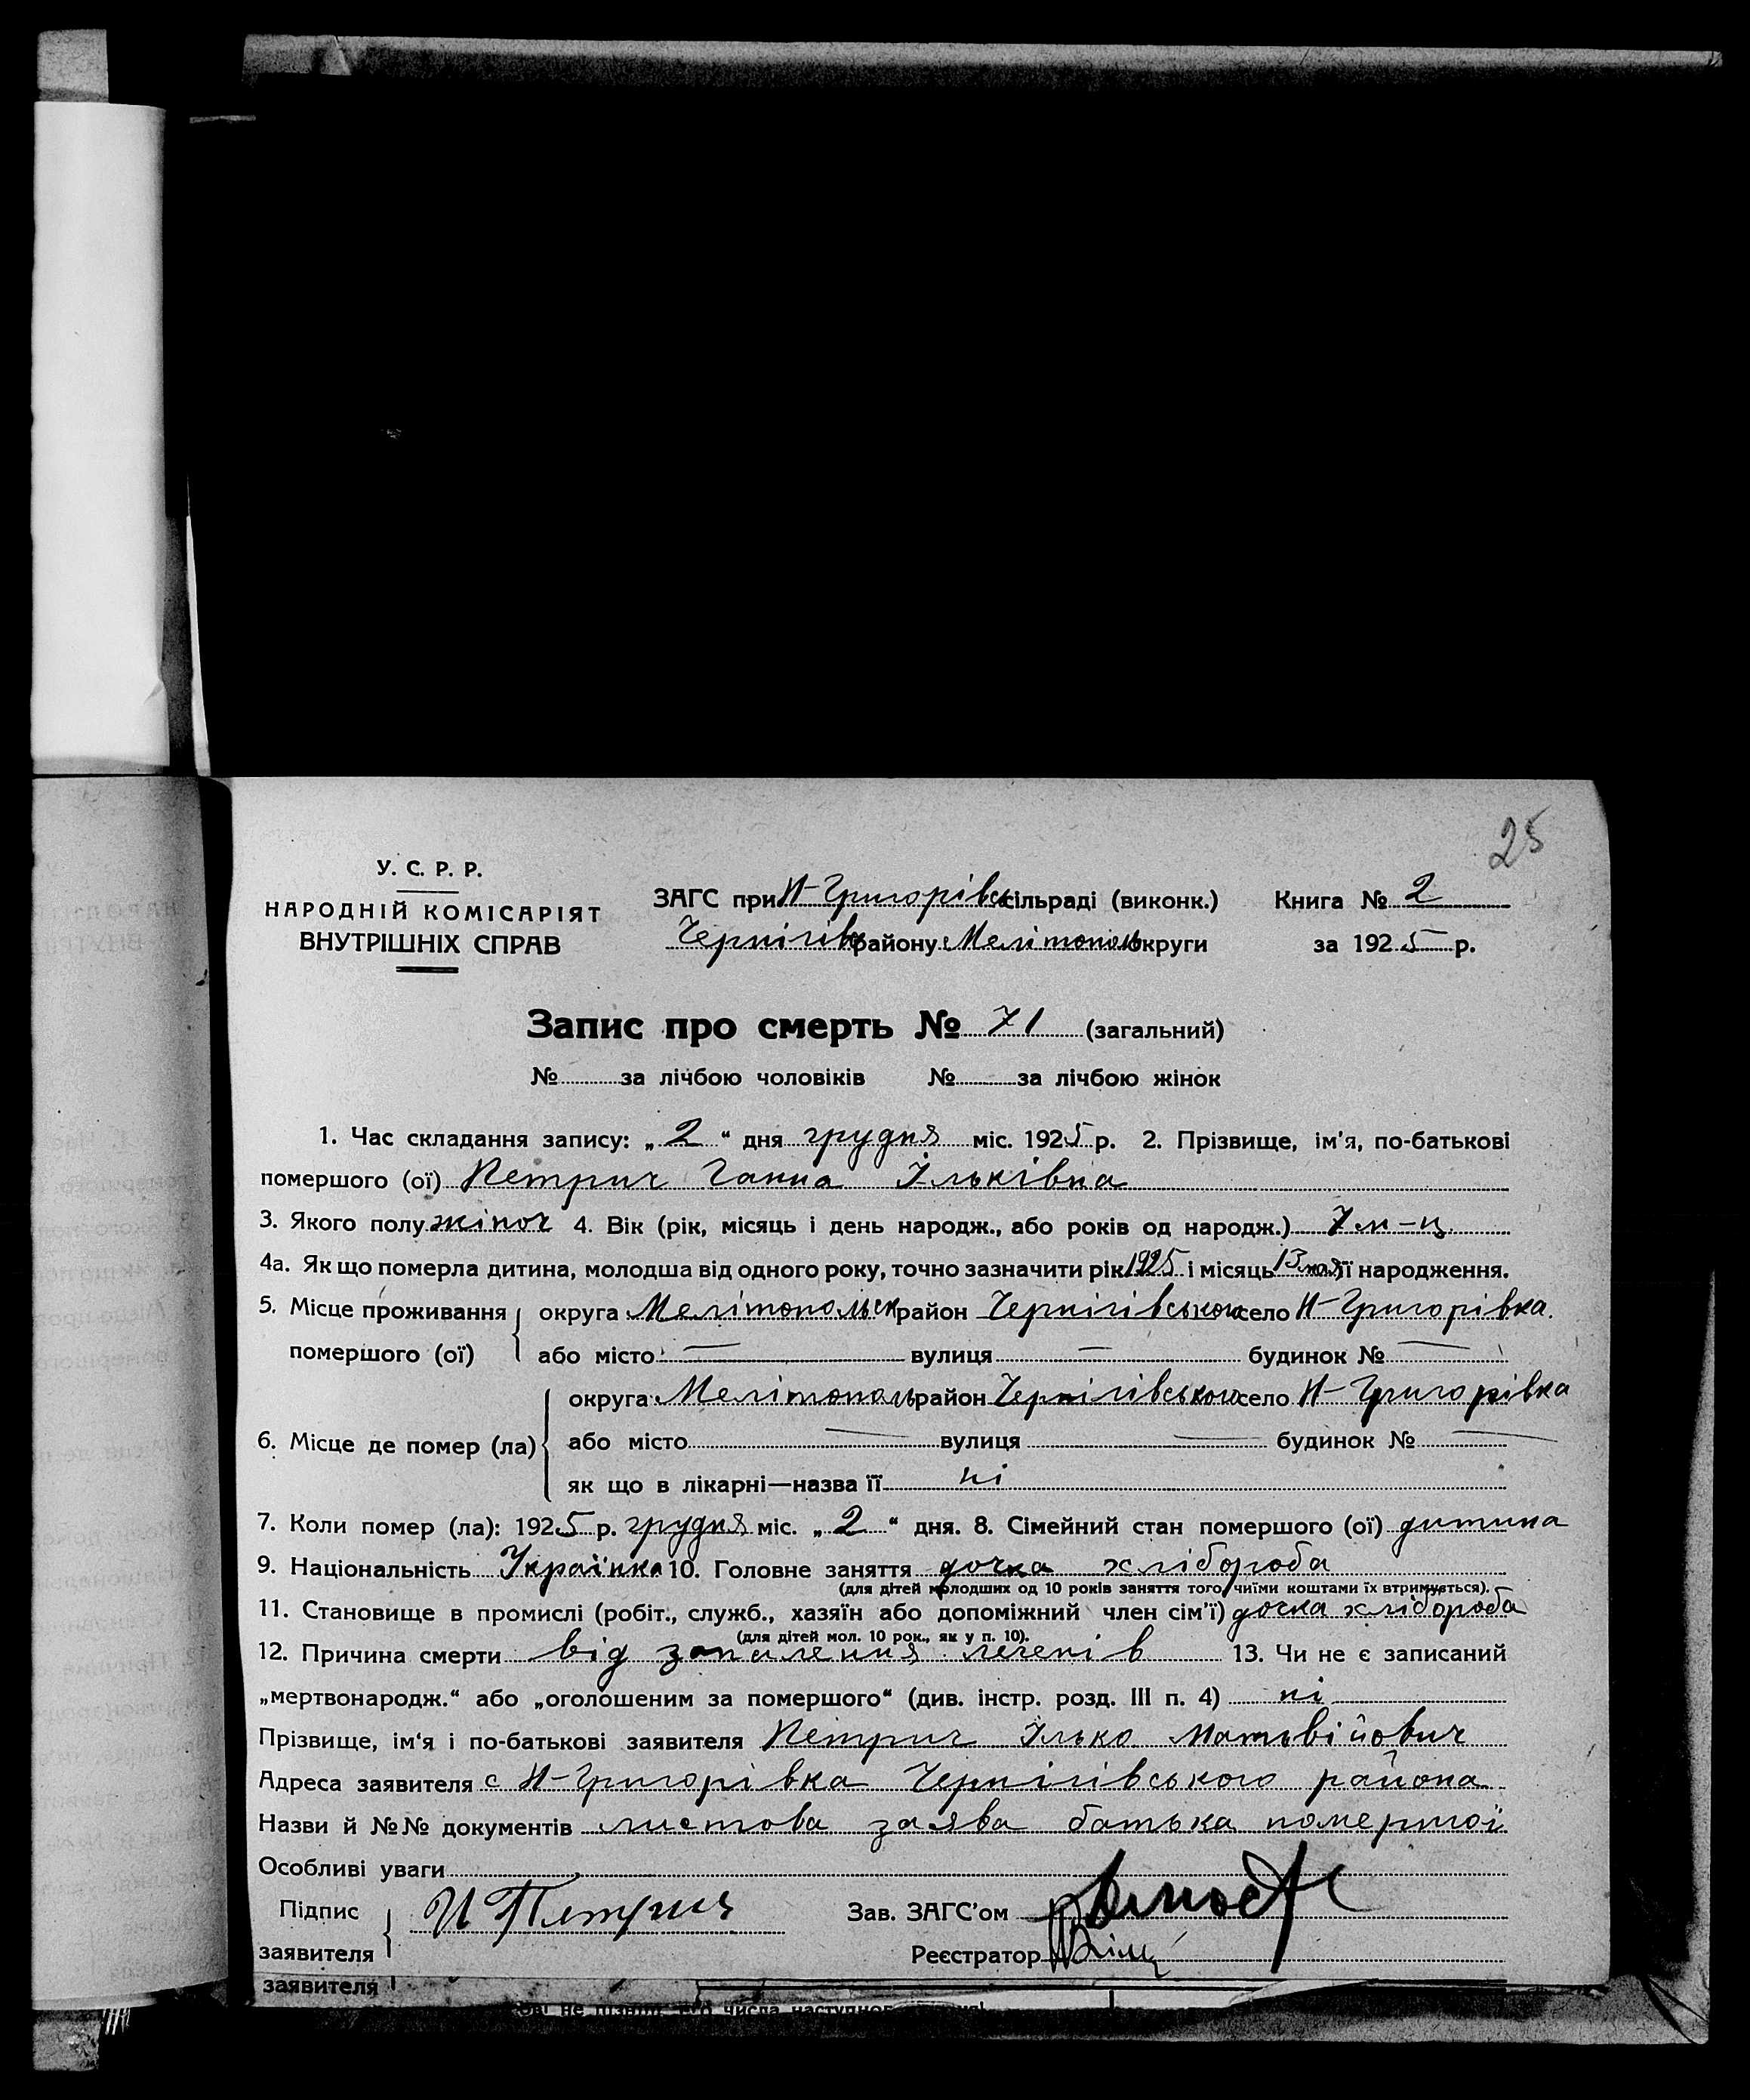 25
У. С. Р. Р.
НАРОДНІЙ КОМІСАРІЯТ
ВНУТРІШНІХ СПРАВ
ЗАГС при Н-Григорівсь сільраді (виконк.) Книга № 2
Чернігівс району Мелітополь округи за 1925 р.
Запис про смерть № 71 (загальний)
№ за лічбою чоловіків № за лічбою жінок
1. Час складання запису: „2“ дня грудня міс. 1925 р. 2. Прізвище, ім'я, по-батькові
помершого (ої) Петрич Ганна Ільківна
3. Якого полу жіноч 4. Вік (рік, місяць і день народж., або років од народж.) 7 м-ц
4а. Як що померла дитина, молодша від одного року, точно зазначити рік 1925 і місяць 13 мая її народження.
5. Місце проживання помершого (ої) округа Мелітопольск район Чернігівського село Н-Григорівка.
або місто — вулиця — будинок № —
6. Місце де помер (ла) округа Мелітополь район Чернігівського село Н-Григорівка
або місто — вулиця — будинок № —
як що в лікарні—назва її ні
7. Коли помер (ла): 1925 р. грудня міс. „2“ дня. 8. Сімейний стан помершого (ої) дитина
9. Національність Українка 10. Головне заняття дочка хлібороба
(для дітей молодших од 10 років заняття того, чиїми коштами їх втримується).
11. Становище в промислі (робіт., служб., хазяїн або допоміжний член сім'ї) дочка хлібороба
(для дітей мол. 10 рок., як у п. 10).
12. Причина смерти від запалення легенів 13. Чи не є записаний
„мертвонародж.“ або „оголошеним за помершого“ (див. інстр. розд. III п. 4) ні
Прізвище, ім'я і по-батькові заявителя Петрич Ілько Матьвійович
Адреса заявителя с Н-Григорівка Чернігівського района
Назви й №№ документів листова заява батька помершої
Особливі уваги
Підпис заявителя И Петрич Зав. ЗАГС'ом
Реєстратор
заявителя
числа